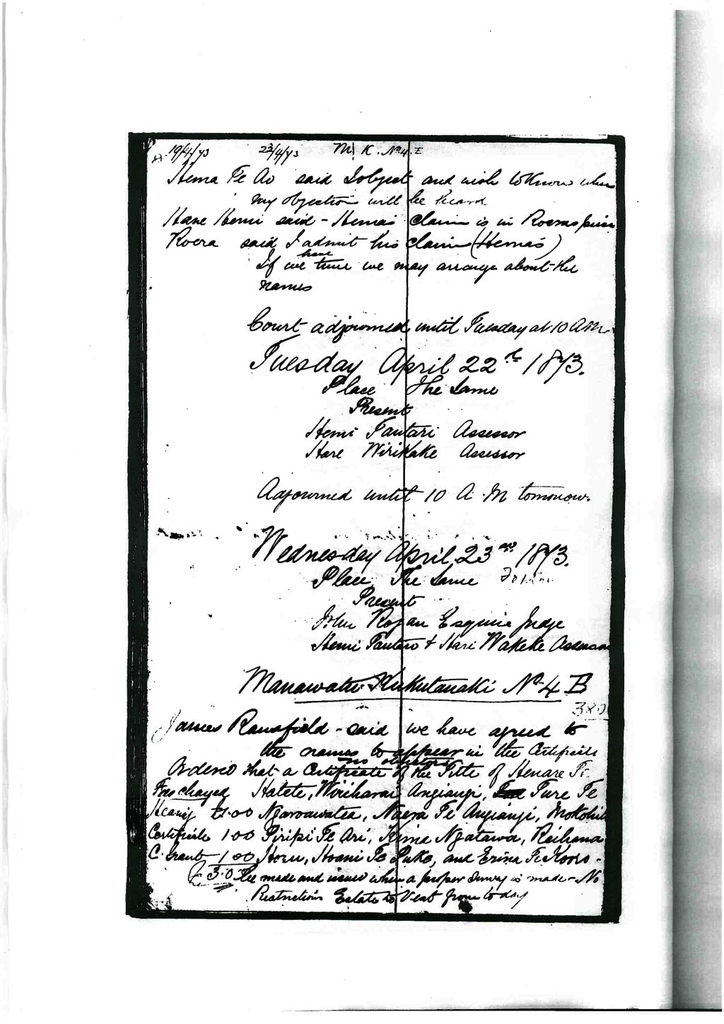 19/4/73 23/4/73 M K No 4 E
Hema Te Ao said I object and wish to know when
my objection will be heard
Hare Hemi said - Hemas claim is in Roeras
Roera said I admit his claim (Hemas)
If we have time we may arrange about the
names
Court adjourned until Tuesday at 10 A.M.
Tuesday April 22nd 1873.
Place The Same
Present
Hemi Tautari Assessor
Hare Wirikake Assessor
Adjourned until 10 A.M tomorrow.
Wednesday April 23rd 1873.
Place The Same
Present
John Rogan Esquire Judge
Hemi Tautari & Hari Wakeke Assessors
Manawatu Kukutauaki No 4 B
James Ransfield - said we have agreed to
the names to appear in the Certificate
no objectors
Ordered that a Certificate of the Title of Henare Te
Fees chayed Hatete, Wiriharai Angiangi, Ture Te
Hearing 1.00 Ngarowatea, Naera Te Angiangi,
Certificate 1 00 Piripi Te Ari, Hema Ngatawa, Reihana
C. Grant 1 00 Horu, Hoani Te Puke, and Erina Te Roors -
£ 3.0 be made and issued when a proper survey is made - No
Restrictions Estate to Vest from to day